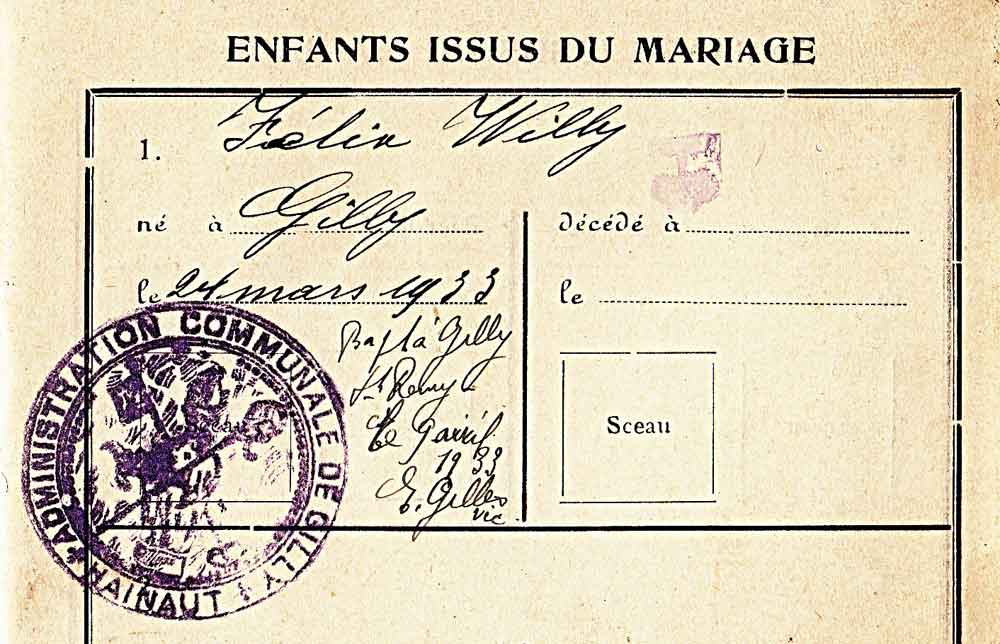 ENFANTS ISSUS DU MARIAGE
1. Félix Willy
né à Gilly
le 24 mars 1933
décédé à
le
Bapt à Gilly
St Remy
le 9 avril
1933
E. Gilles
vic.
Sceau
Sceau
ADMINISTRATION COMMUNALE DE GILLY
HAINAUT